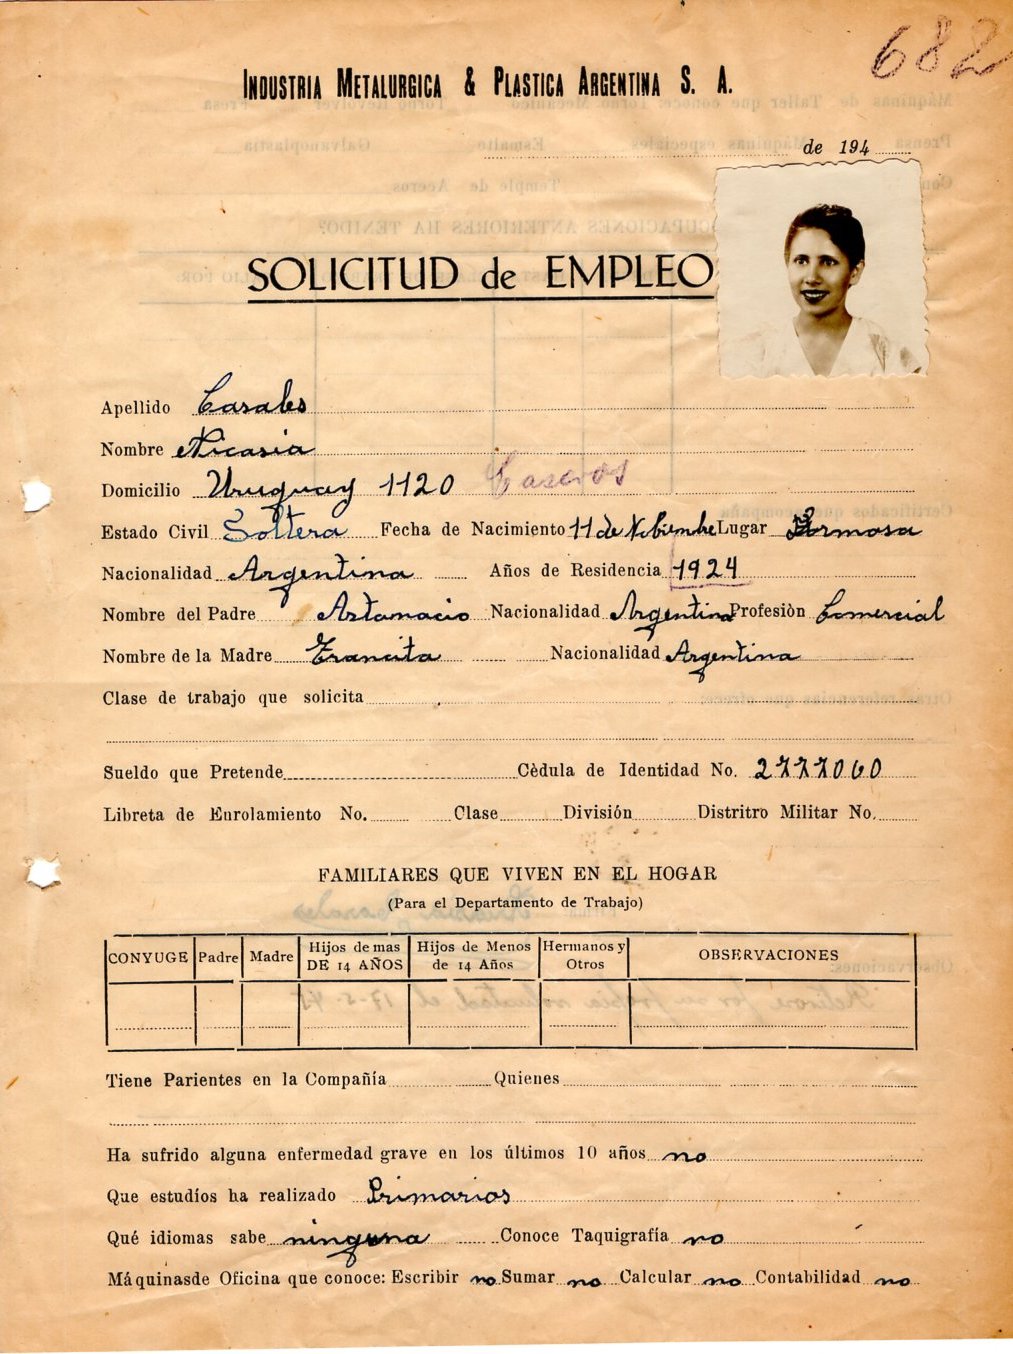 682
INDUSTRIA METALURGICA & PLASTICA ARGENTINA S. A.
de 194
SOLICITUD de EMPLEO
Apellido Casales
Nombre Nicasia
Domicilio Uruguay 1120 Caseros
Estado Civil Soltera Fecha de Nacimiento 11 de Nobiembre Lugar Formosa
Nacionalidad Argentina Años de Residencia 1924
Nombre del Padre Nacionalidad Argentina Profesiòn Comercial
Nombre de la Madre Nacionalidad Argentina
Clase de trabajo que solicita
Sueldo que Pretende Cèdula de Identidad No. 2777060
Libreta de Enrolamiento No. Clase División Distritro Militar No.
FAMILIARES QUE VIVEN EN EL HOGAR
(Para el Departamento de Trabajo)
CONYUGE Padre Madre Hijos de mas DE 14 AÑOS Hijos de Menos de 14 Años Hermanos y Otros OBSERVACIONES
Tiene Parientes en la Compañía Quienes
Ha sufrido alguna enfermedad grave en los últimos 10 años no
Que estudíos ha realizado Primarios
Qué idiomas sabe ninguna Conoce Taquigrafía no
Máquinasde Oficina que conoce: Escribir no Sumar no Calcular no Contabilidad no